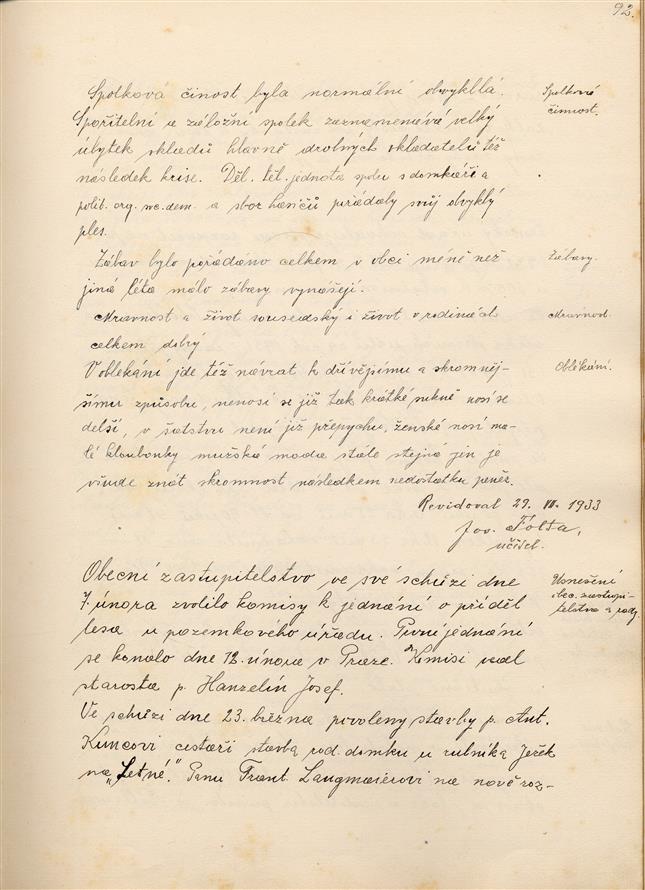 92.
Spolková činost byla normální obvyklá.
Spolková
činnost.
Spořitelní a záložní spolek zaznamenává velký
úbytek vkladů hlavně drobných vkladatelů též
následek krise. Děl. těl. jednota spolu s domkáři a
polit. org. soc. dem. a sbor hasičů pořádaly svůj obvyklý
ples.
Zábav bylo pořádáno celkem v obci méně než
Zábavy.
jiná léta málo zábavy vynášejí.
Mravnost a život sousedský i život v rodinách
Mravnost.
celkem dobrý
V oblékání jde též návrat k dřívějšímu a skromněj-
Oblékání.
šímu způsobu, nenosí se již tak krátké sukně nosí se
delší, v šatstvu není již přepychu, ženské nosí ma-
lé kloubouky mužská moda stále stejná jen je
všude znát skromnost následkem nedostatku peněz.
Revidoval 29. VII. 1933
Jos. Folta,
učitel.
Obecní zastupitelstvo ve své schůzi dne
Usnešení
obec. zastupi-
telstva a rady.
7. února zvolilo komisy k jednání o příděl
lesa u pozemkového úřadu. První jednání
se konalo dne 12. února v Praze. Komisi vedl
starosta p. Hanzelín Josef.
Ve schůzi dne 23. března povoleny stavby p. Ant.
Kuncovi cestáři stavba rod. domku u rulníka Ježek
na „Letné“. Panu Frant. Langmaierovi na nově roz-